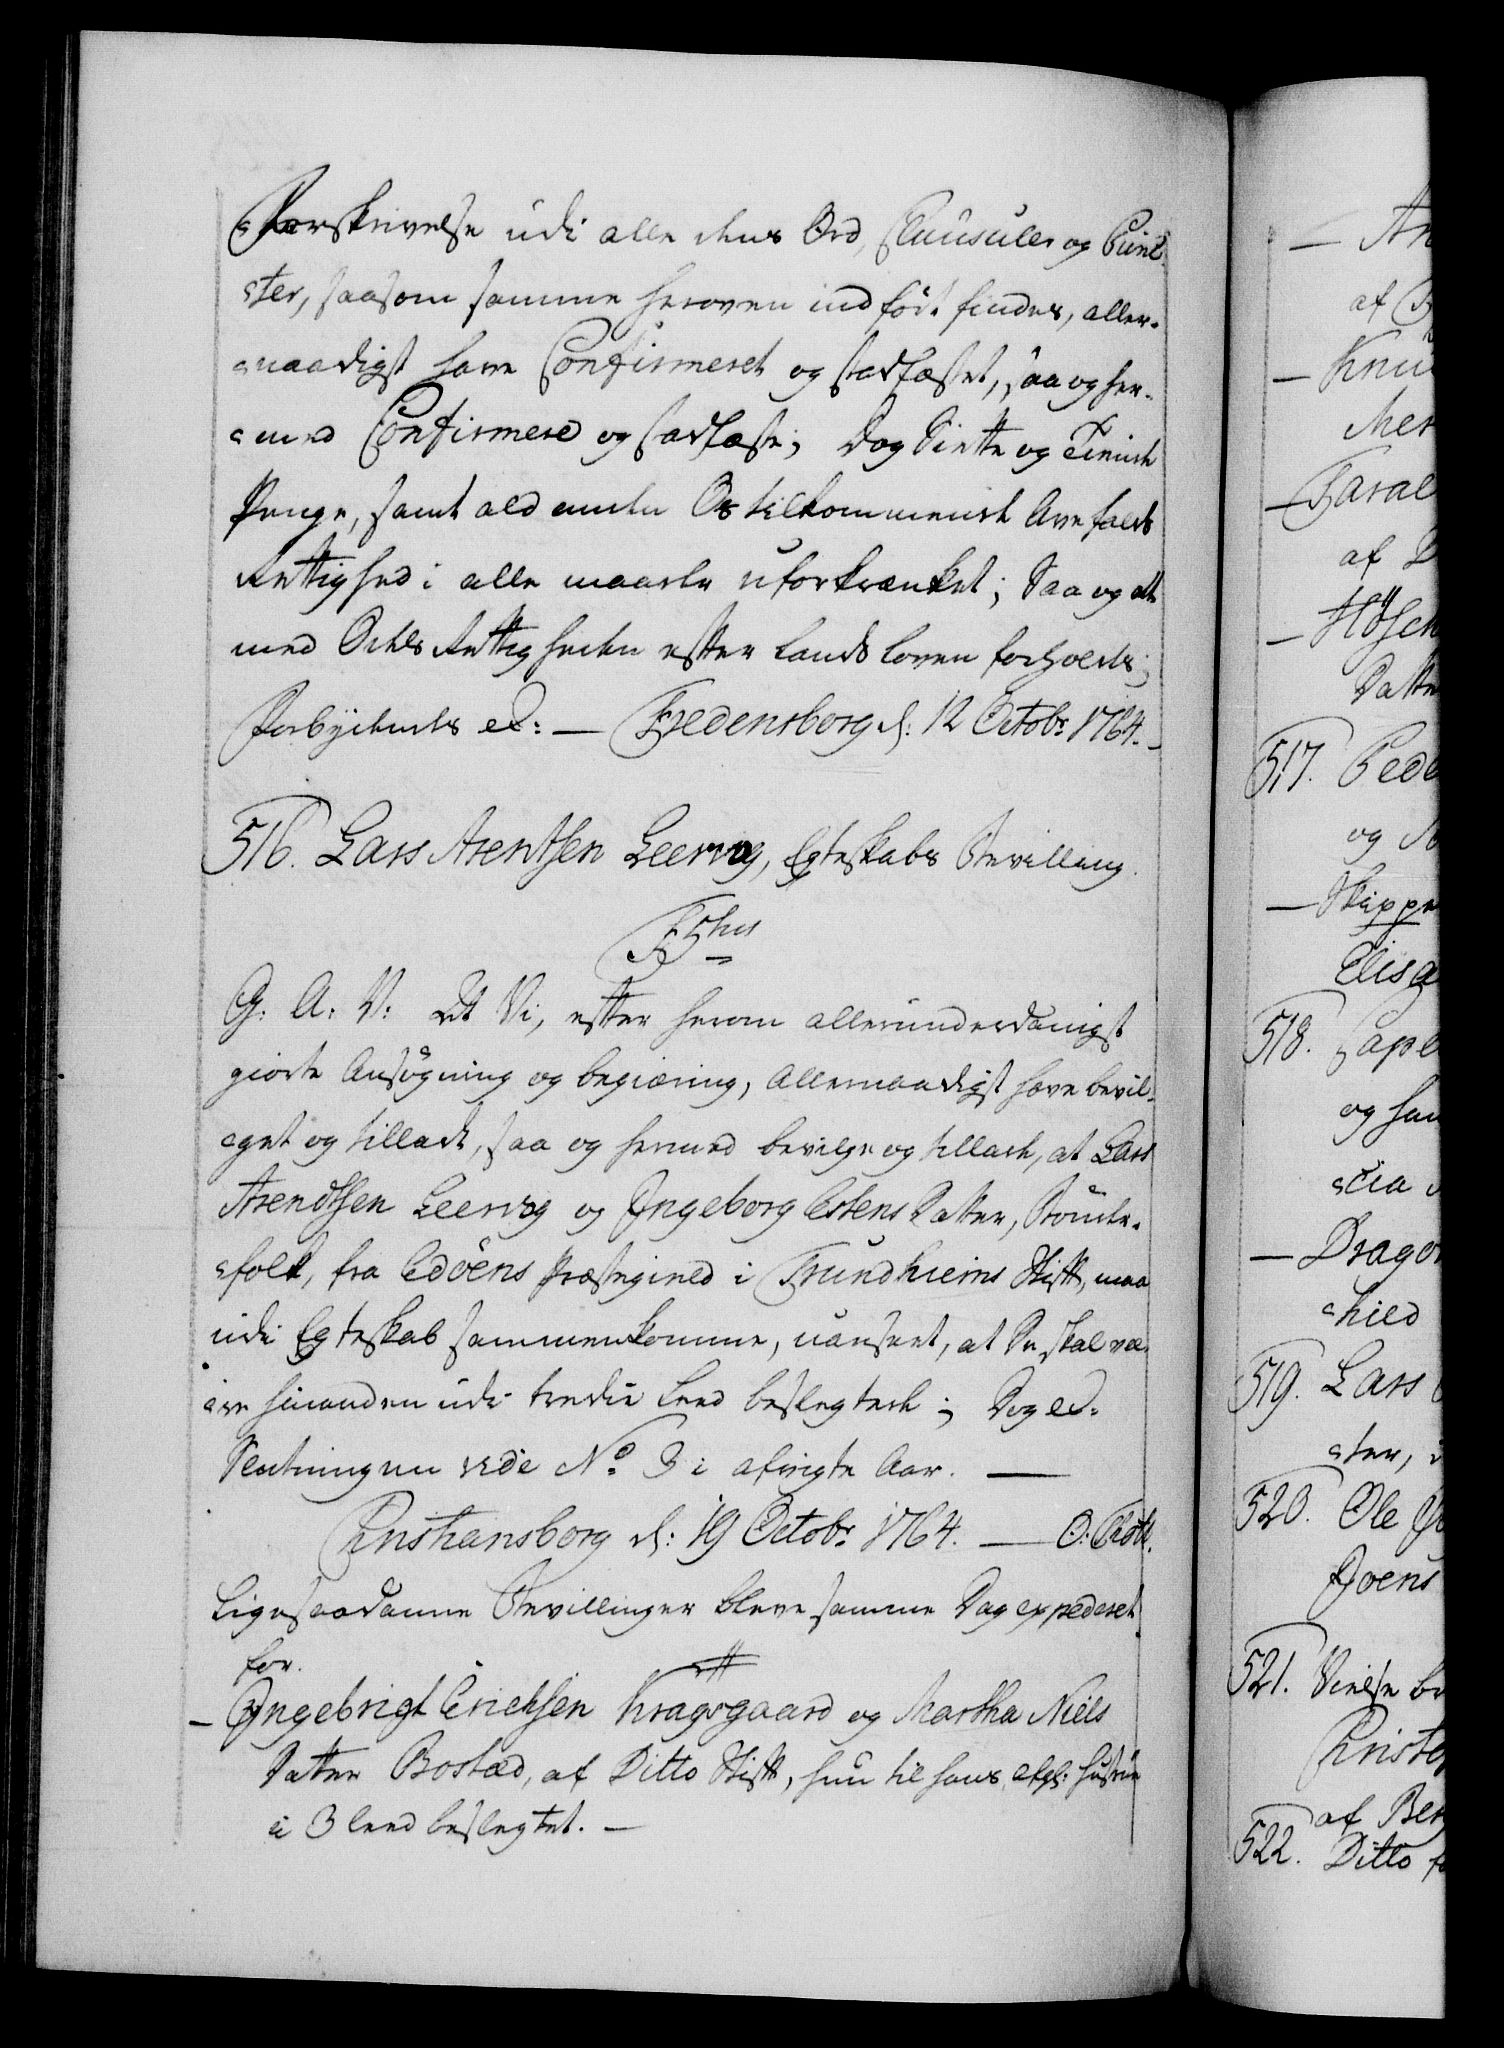 Forskrivelse udi alle dens Ord, Clausuler og Punc-
ster, saasom samme heroven indført findes, aller-
naadigst have Confirmeret og stadfæstet, saa og her-
med Confirmere og stadfæste; Dog Siette og Tiende
Penge, samt ald anden Os tilkommende Arvefalds
Rettighed i alle maader uforkrænket; Saa og at
med Odels Rettigheden efter Lands Loven forholdes;
Forbydendes et: — Fredensborg d: 12 Octobr 1764. —
516. Lars Arentsen Leervog, Egteskabs Bevilling.
F 5 hus
G: A: V: At Vi, efter herom allerunderdanigst
giorte Ansøgning og begiæring, Allernaadigst have bevil-
get og tilladt, saa og hermed bevilge og tillade, at Lars
Arendtsen Leervog og Ingeborg Estens Datter, Bønder-
folk, fra Edøens Præstegield i Trundhiems Stift, maa
udi Egteskab sammenkomme, uanseet, at De skal væ-
re hinanden udi tredie Leed beslegtede; Dog et.
Slutningen vide No. 3 i afvigte Aar. —
Christiansborg d: 19 Octobr 1764. — O. Thott.
Ligesaadanne Bevillinger bleve samme Dag expederet
for.
— Ingebrigt Erichsen Kragsgaard og Martha Niels
Datter Bostad, af Ditto Stift, hun til hans afgl: Hustrue
i 3 Leed beslegtet. —
— An
af
— Knu
Mer
— Taral
af D
— Høsch
Datte
517. Pede
og
— Skippe
Elisa
518. Cape
og han
cia
— Drago
hild
519. Lars
ster,
520. Ole
Joens
521. Vielse be
Christo
af Ber
522. Ditto f